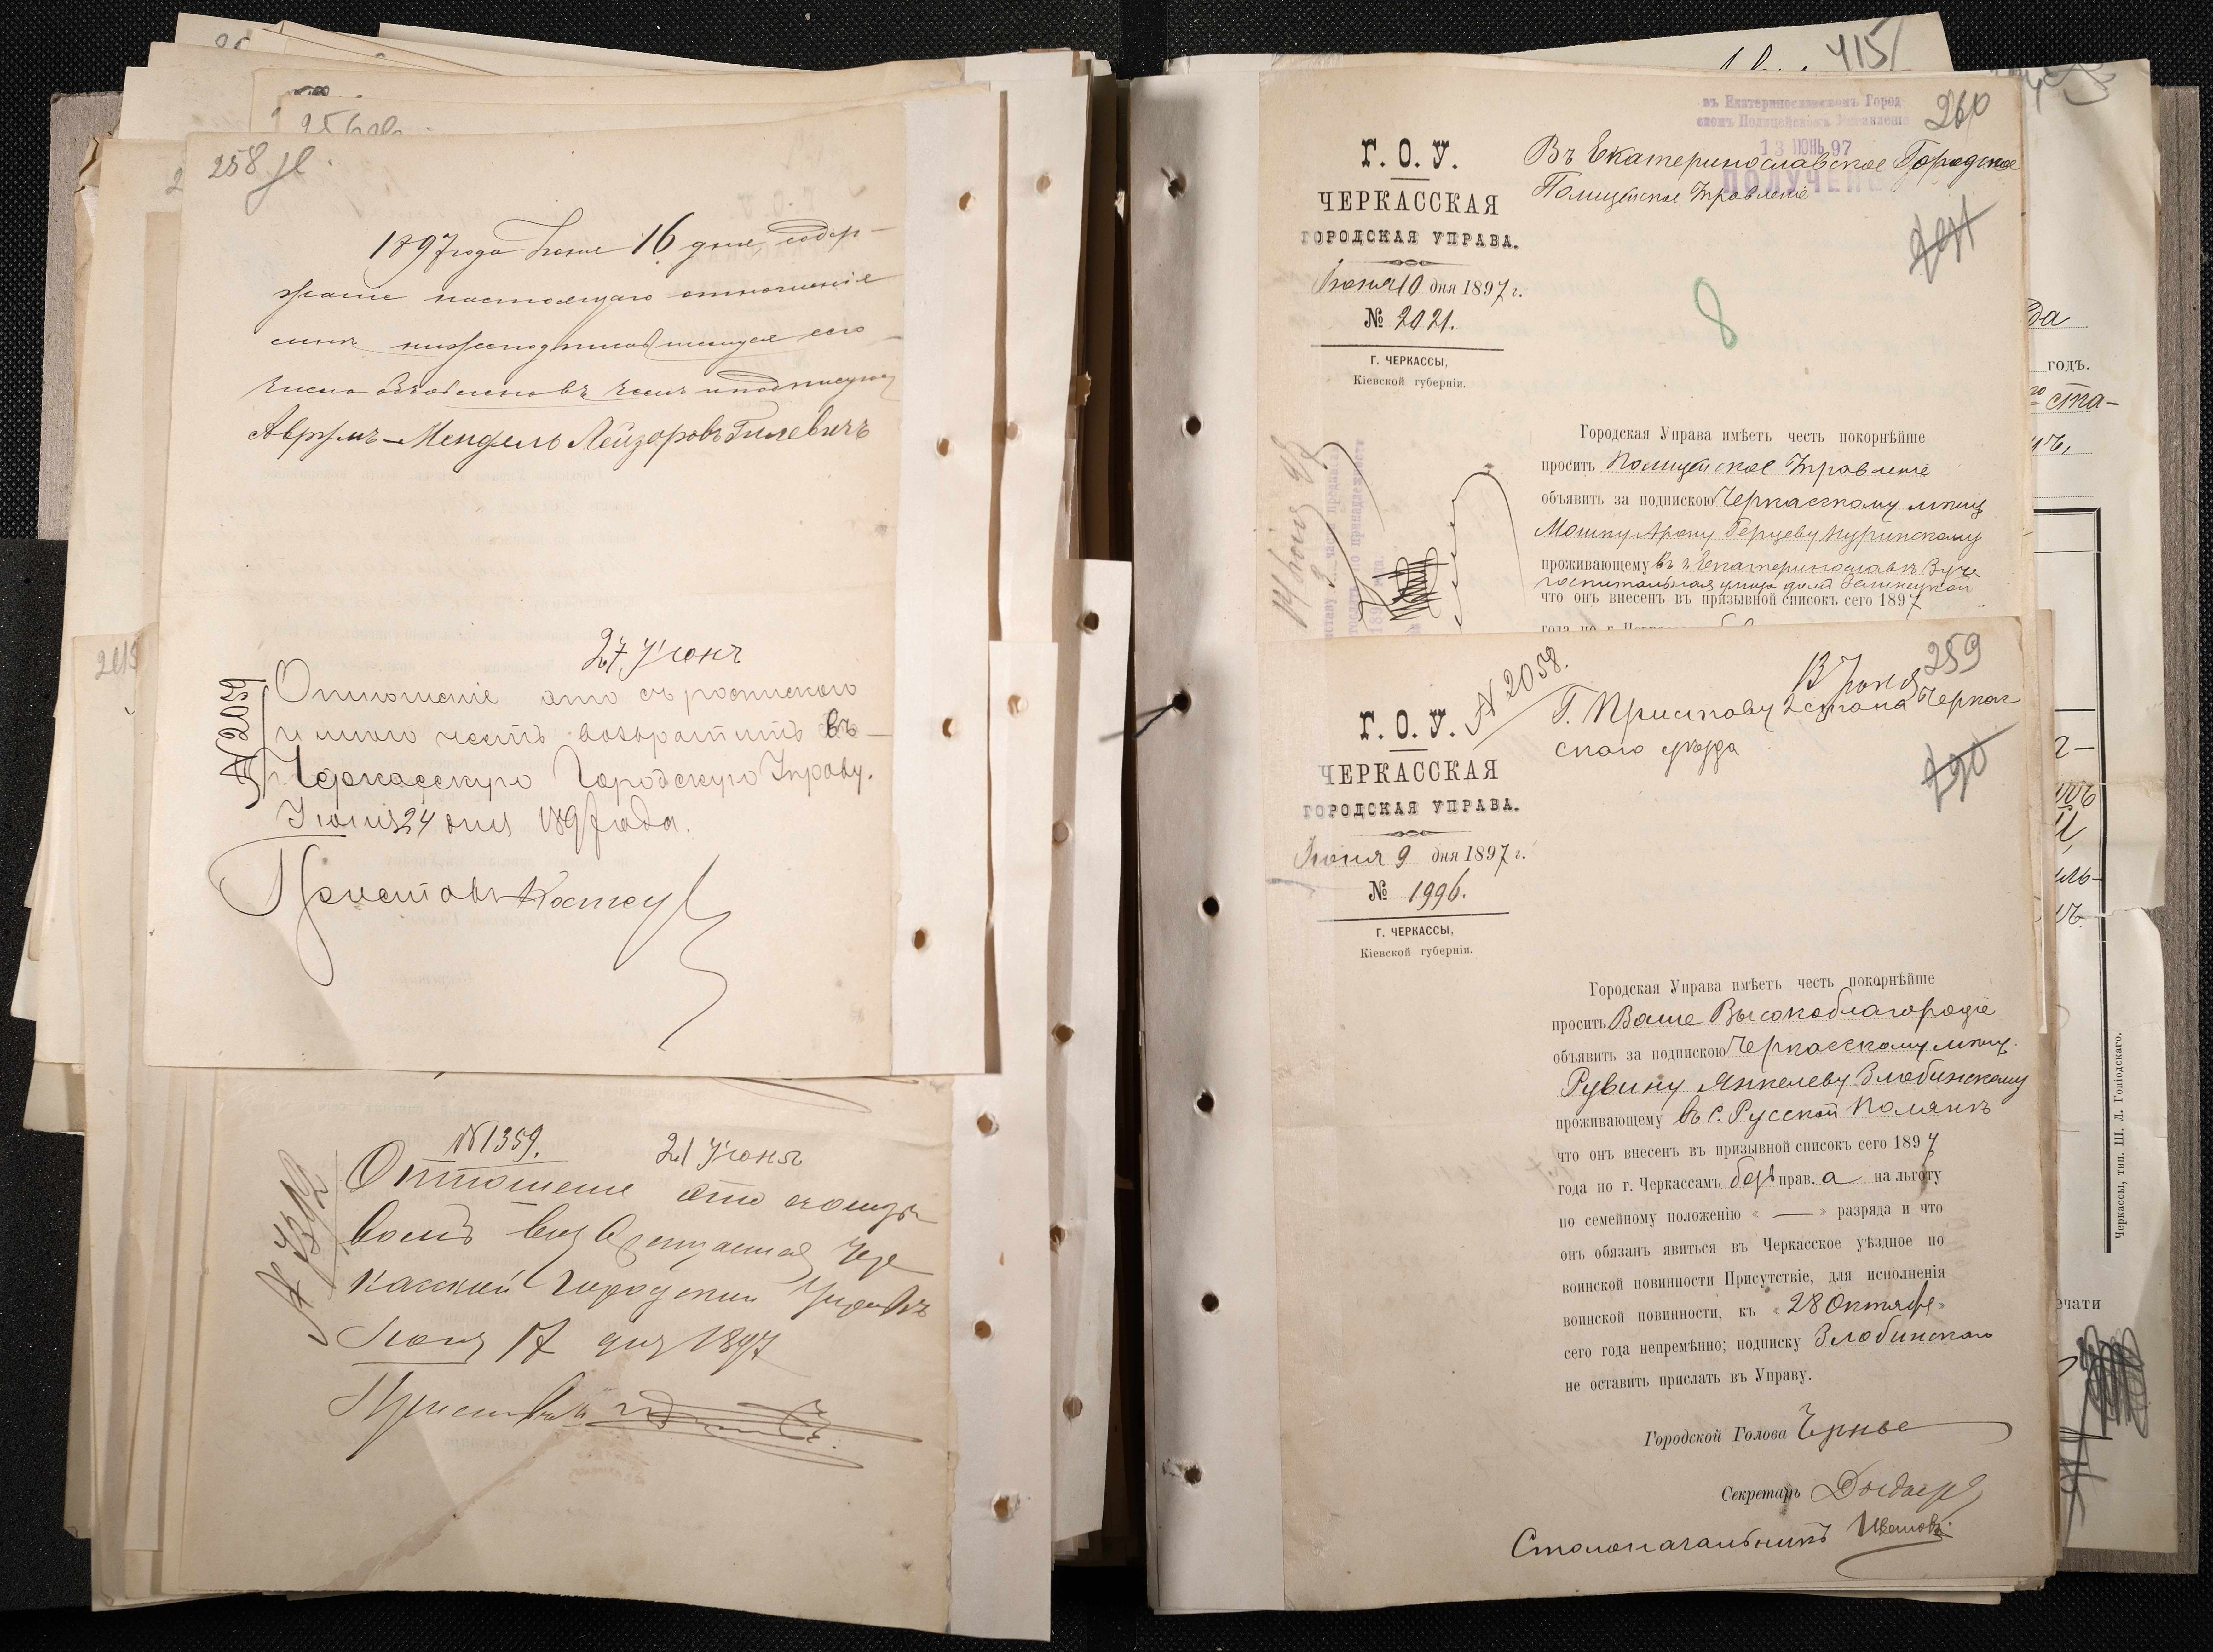 258
1897 года Июня 16 дня, содер-
жание настоящаго отношенія
мнѣ нижеподписавшемуся сего
числа объявлено въ чемъ и подписуюсь
Аврумъ-Мендель Лейзоровъ Гилевичъ
27 Іюня
№ 2059
Отношеніе это съ роспискою
имѣю честь возвратить въ
Черкасскую Городскую Управу.
Іюня 24 дня 1897 года.
Приставъ
№ 1359.
21 Іюня
Отношеніе это
возвращается Чер
касской Городской Управѣ
Іюня 17 дня 1897
Приставъ
415
260
въ Екатеринославскомъ Город-
скомъ Полицейскомъ Управленіе
13 ІЮНЬ 97
ПОЛУЧЕНО
Въ Екатеринославское Городское
Полицейское Управленіе
Г. О. У.
ЧЕРКАССКАЯ
ГОРОДСКАЯ УПРАВА.
Іюня 10 дня 1897 г.
№ 2021.
Г. ЧЕРКАССЫ,
Кіевской губерніи.
8
Городская Управа имѣетъ честь покорнѣйше
просить Полицейское Управленіе
объявить за подпискою Черкасскому мѣщ
Мошку-Арону Герцеву Куринскому
проживающему въ г. Екатеринославѣ
госпитальная улица домъ
что онъ внесенъ въ призывной списокъ сего 1897
259
№ 2058.
13 Іюня
Г. Приставу 2 стана Черкас
скаго уѣзда
Г. О. У.
ЧЕРКАССКАЯ
ГОРОДСКАЯ УПРАВА.
Іюня 9 дня 1897 г.
№ 1996.
Г. ЧЕРКАССЫ,
Кіевской губерніи.
Городская Управа имѣетъ честь покорнѣйше
просить Ваше Высокоблагородіе
объявить за подпискою Черкасскому мѣщ.
Рувину Янкелеву Злобинскому
проживающему въ с. Русской Полянѣ
что онъ внесенъ въ призывной списокъ сего 1897
года по г. Черкассамъ безъ прав. а на льготу
по семейному положенію « — » разряда и что
онъ обязанъ явиться въ Черкасское уѣздное по
воинской повинности Присутствіе, для исполненія
воинской повинности, къ « 28 Октября »
сего года непремѣнно; подписку Злобинскаго
не оставить прислать въ Управу.
Городской Голова
Секретарь
Столоначальникъ Ивановъ
да
годъ.
ста-
Черкассы, тип. Ш. Л. Гоніодскаго.
ечати